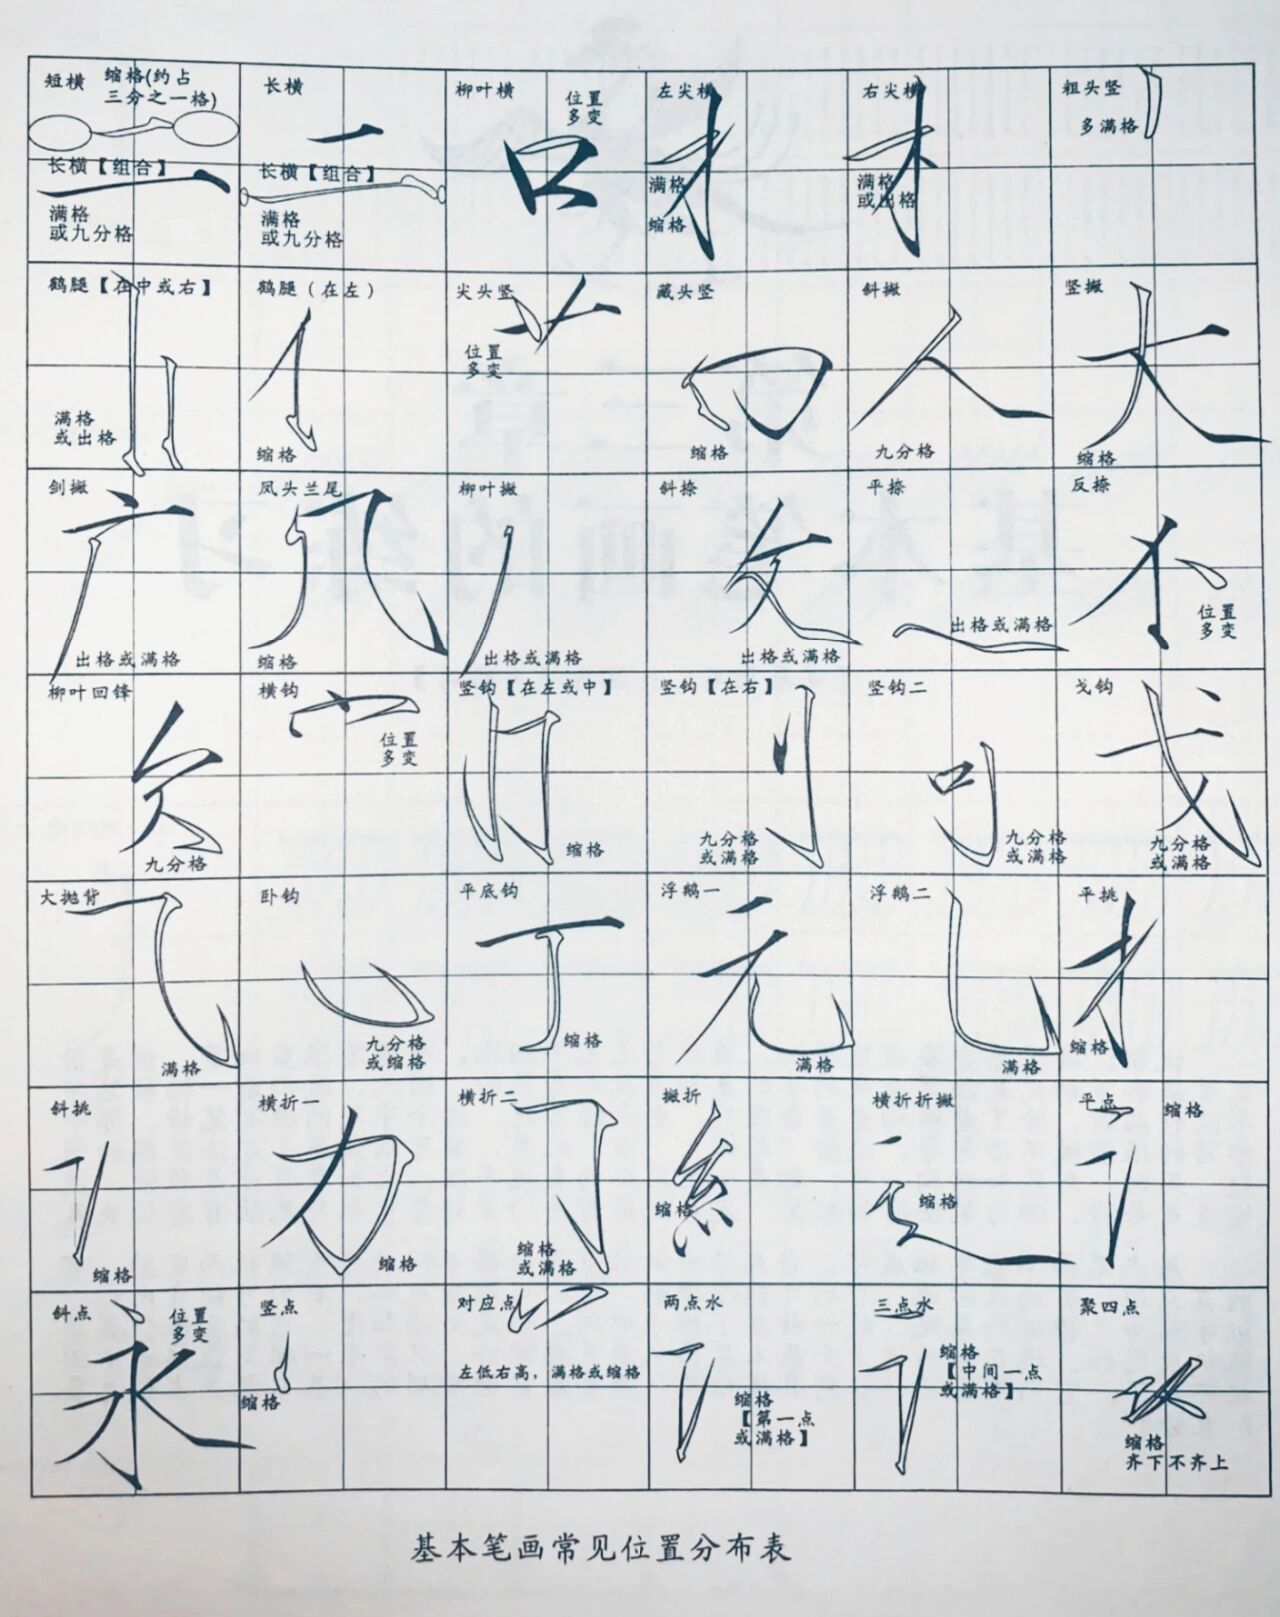 短横 缩格(约占
三分之一格)
长横【组合】
满格
或九分格
长横
长横【组合】
满格
或九分格
柳叶横
位置
多变
口
左尖横
满格
缩格
右尖横
满格
或出格
粗头竖
多满格
鹤腿【在中或右】
满格
或出格
鹤腿(在左)
缩格
尖头竖
位置
多变
藏头竖
缩格
斜撇
人
九分格
竖撇
大
缩格
剑撇
广
出格或满格
凤头兰尾
缩格
柳叶撇
出格或满格
斜捺
出格或满格
平捺
出格或满格
反捺
位置
多变
柳叶回锋
九分格
横钩
位置
多变
竖钩【在左或中】
缩格
竖钩【在右】
九分格
或满格
竖钩二
九分格
或满格
戈钩
戈
九分格
或满格
大抛背
满格
卧钩
九分格
或缩格
平底钩
丁
缩格
浮鹅一
元
满格
浮鹅二
满格
平挑
缩格
斜挑
缩格
横折一
力
缩格
横折二
缩格
或满格
撇折
缩格
横折折撇
缩格
平点
缩格
斜点
位置
多变
永
竖点
缩格
对应点
左低右高，满格或缩格
两点水
缩格
【第一点
或满格】
三点水
缩格
【中间一点
或满格】
聚四点
缩格
齐下不齐上
基本笔画常见位置分布表